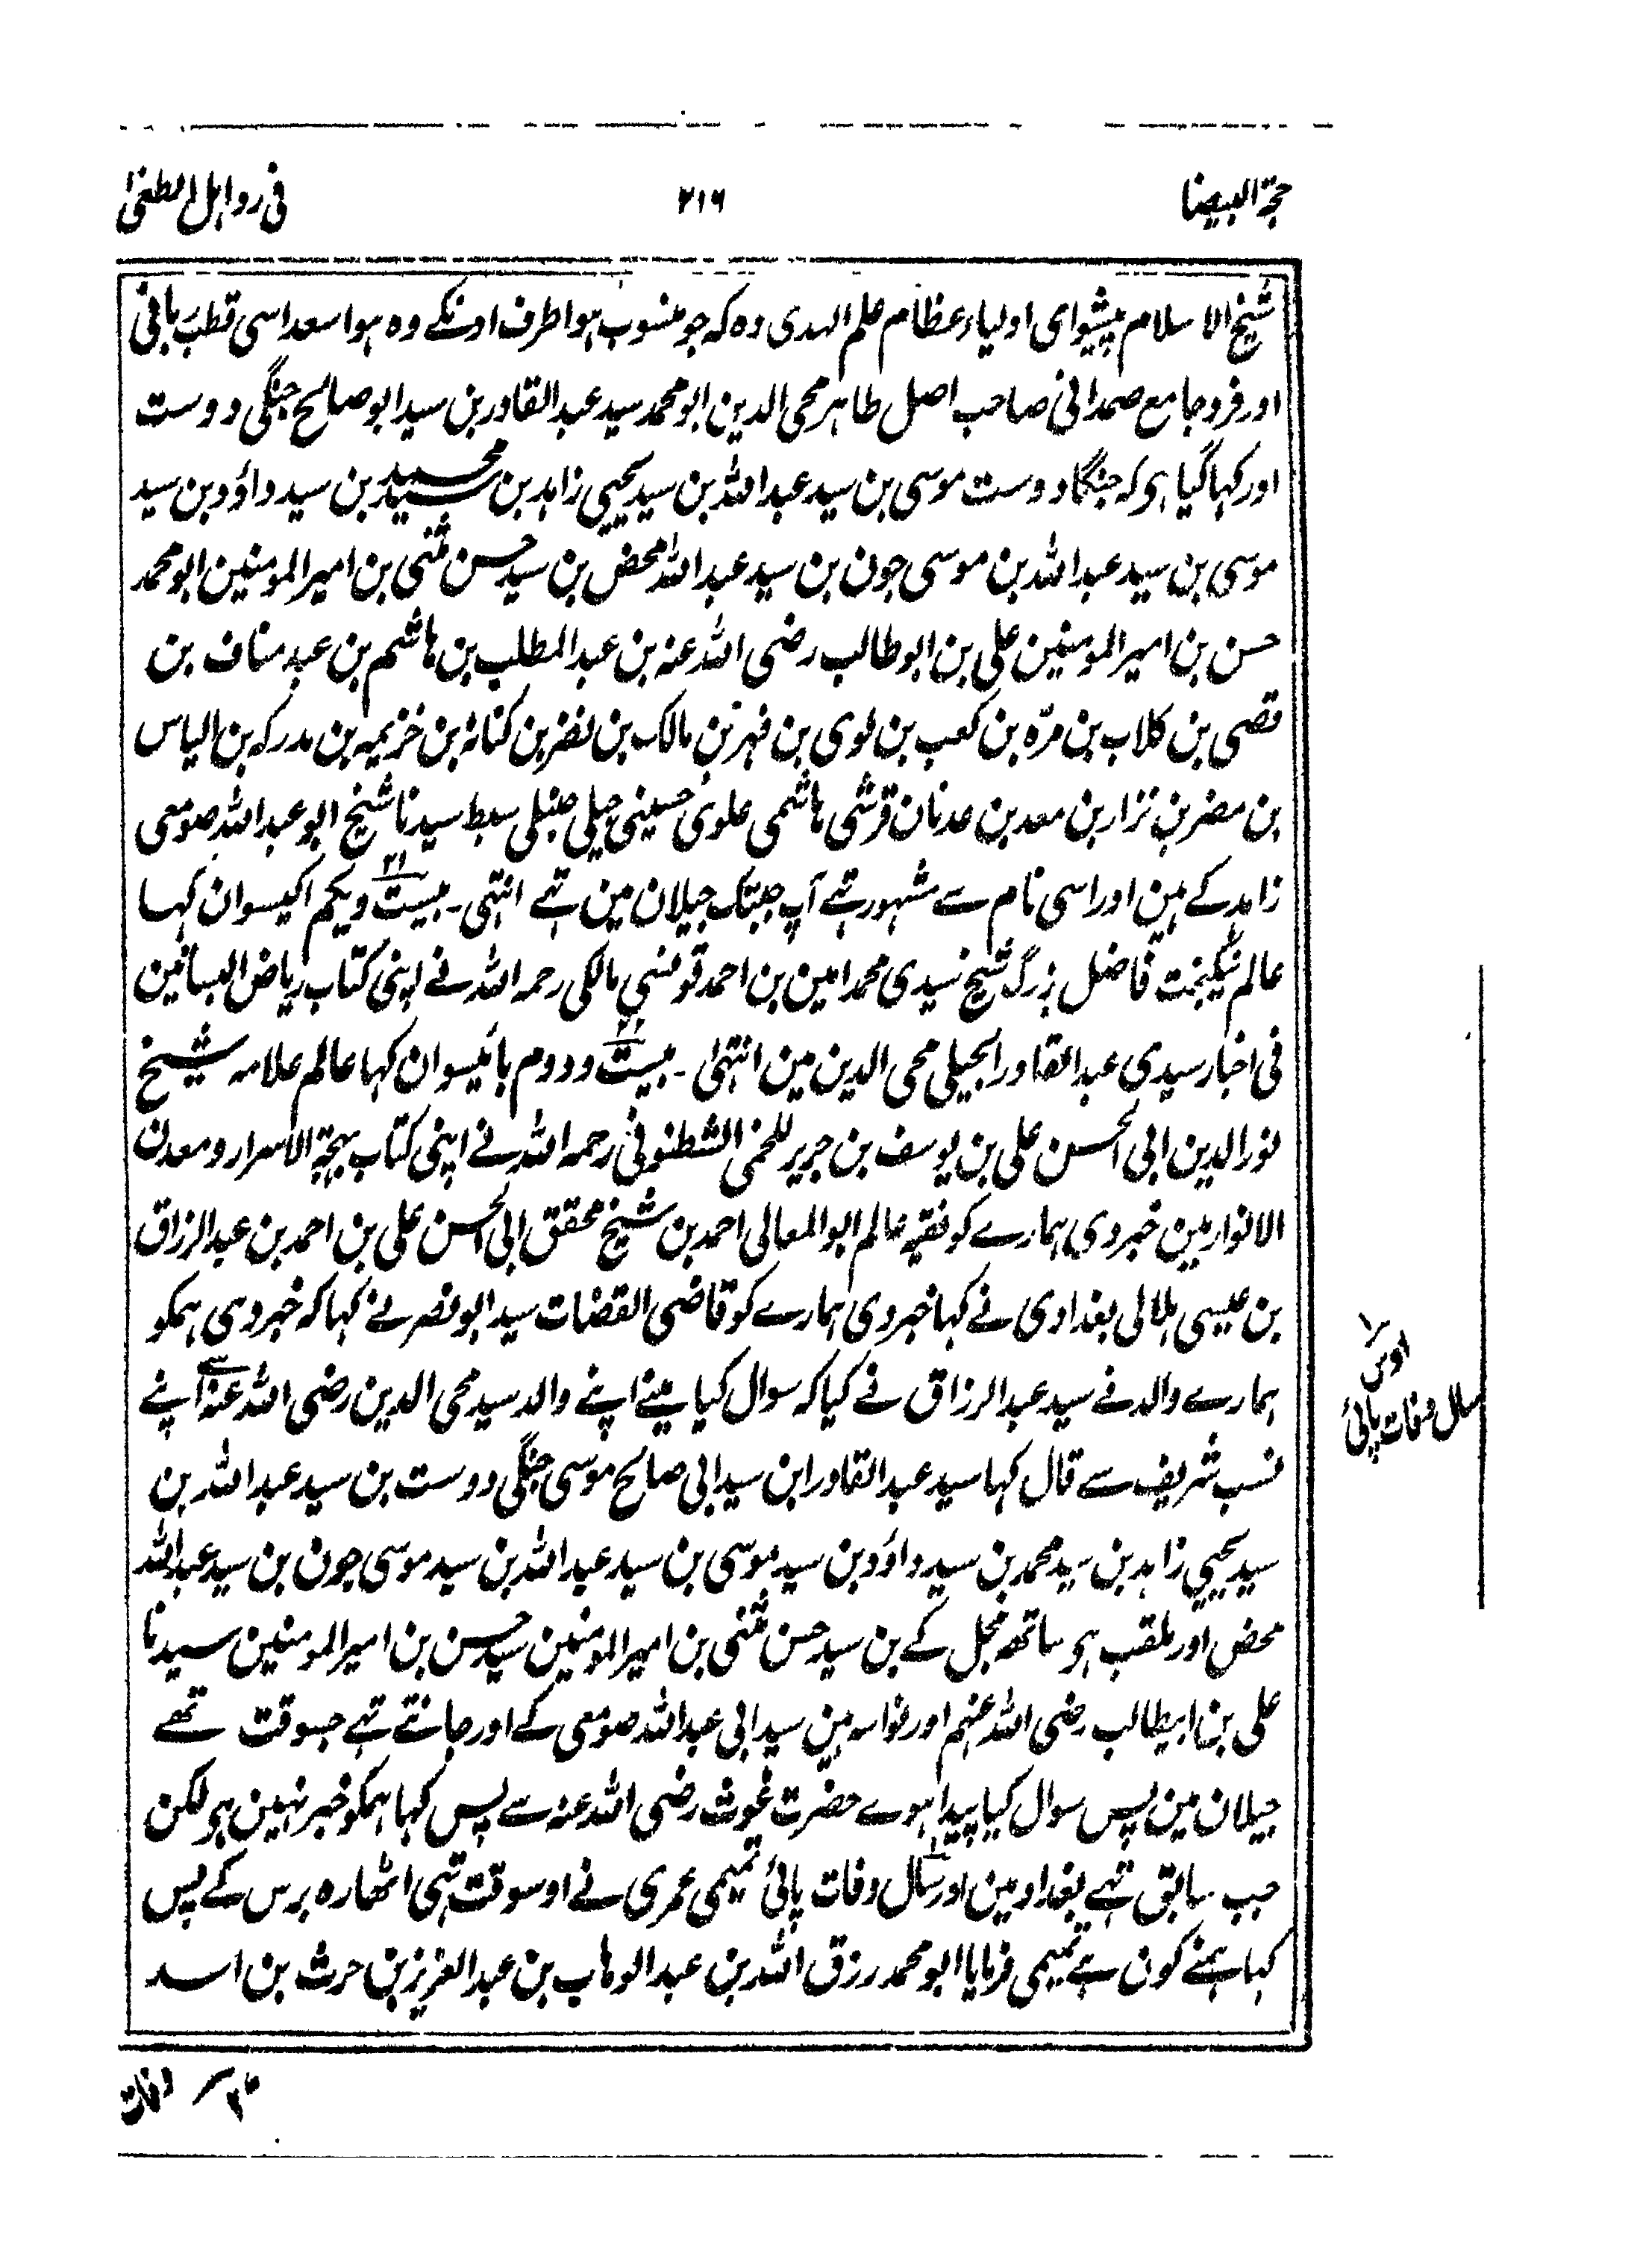 حجۃ البیضا
۲۱۶
فی رد اہل الطغیٰ
شیخ الاسلام پیشوای اولیاء عظام علم الہدی وہ کہ جو منسوب ہوا طرف اونکے وہ ہوا سعد اسی قطب بانی
اور فرد جامع صمدانی صاحب اصل طاہر محی الدین ابو محمد سید عبدالقادر بن سید ابو صالح جنگی دوست
اور کہا گیا ہی کہ جنگا دوست موسی بن سید عبداللہ بن سید یحیی زاہد بن سید محمد بن سید داؤد بن سید
موسی بن سید عبداللہ بن موسی جون بن سید عبداللہ محض بن سید حسن مثنی بن امیر المومنین ابو محمد
حسن بن امیر المومنین علی بن ابو طالب رضی اللہ عنہ بن عبدالمطلب بن ہاشم بن عبد مناف بن
قصی بن کلاب بن مرّہ بن کعب بن لوی بن فہر بن مالک بن نضر بن کنانہ بن خزیمہ بن مدرکہ بن الیاس
بن مضر بن نزار بن معد بن عدنان قرشی ہاشمی علوی حسینی جیلی حنبلی سبط سیدنا شیخ ابو عبداللہ صومعی
زاہد کے ہین اور اسی نام سے شہور تہے آپ جبتک جیلان مین تہے انتہی ۔ بیست ۲۱ ویکم اکیسوان کہا
عالم نیکبخت فاضل بزرگ شیخ سیدی محمد امین بن احمد تونسی مالکی رحمہ اللہ نے اپنی کتاب ریاض البساتین
فی اخبار سیدی عبدالقادر الجیلی محی الدین مین انتہیٰ ۔ بیست ۲۲ ودوم بائیسوان کہا عالم علامہ شیخ
نورالدین ابی الحسن علی بن یوسف بن جریر للخمی الشطنوفی رحمہ اللہ نے اپنی کتاب بہجۃ الاسرار ومعدن
الانوار مین خبر دی ہمارے کو فقیہ عالم ابو المعالی احمد بن شیخ محقق ابی الحسن علی بن احمد بن عبدالرزاق
بن عیسی ہلالی بغدادی نے کہا خبر دی ہمارے کو قاضی القضات سید ابو نصر نے کہا کہ خبر دی ہمکو
ہمارے والد نے سید عبدالرزاق نے کہا کہ سوال کیا مینے اپنے والد سید محی الدین رضی اللہ عنہ سے اپنے
نسب شریف سے قال کہا سید عبدالقادر ابن سید ابی صالح موسی جنگی دوست بن سید عبداللہ بن
سید یحیی زاہد بن سید محمد بن سید داؤد بن سید موسی بن سید عبداللہ بن سید موسی جون بن سید عبداللہ
محض اور ملقب ہو ساتھ مجل کے بن سید حسن مثنی بن امیر المومنین سید حسن بن امیر المومنین سیدنا
علی بن ابیطالب رضی اللہ عنہم اور نواسہ ہین سید ابی عبداللہ صومعی کے اور جانتے تہے جسوقت تھے
جیلان مین پس سوال کیا پیدا ہوے حضرت غوث رضی اللہ عنہ سے پس کہا ہمکو خبر نہین ہو لکن
جب سابق تہے بغداد مین اور سال وفات پائی تمیمی عمری نے اوسوقت تہی اٹھارہ برس کے پس
کہا ہمنے کون ہے تمیمی فرمایا ابو محمد رزق اللہ بن عبدالوہاب بن عبدالعزیز بن حرث بن اسد
اوس
سال وفات پائی